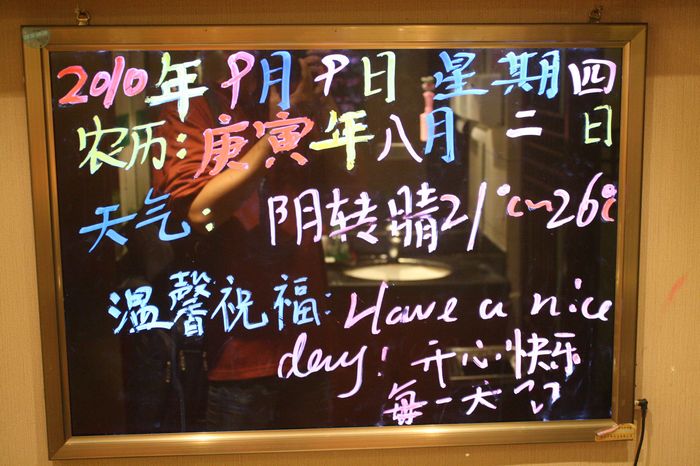 2010年9月9日 星期四
农历:庚寅年八月二日
天气: 阴转晴21℃~26℃
温馨祝福: Have a nice
day! 开心快乐
每一天